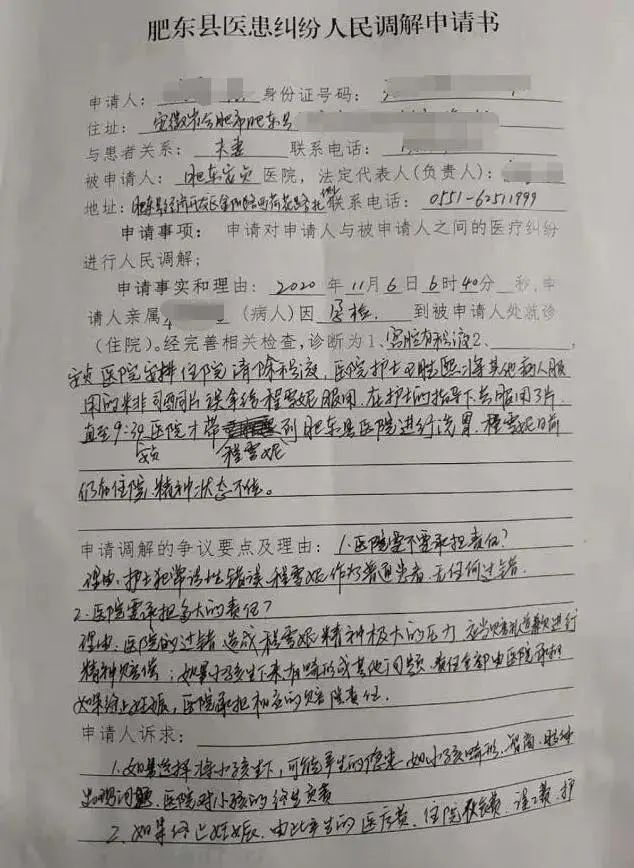 肥东县医患纠纷人民调解申请书
申请人： 身份证号码：
住址：安徽省合肥市肥东县
与患者关系：夫妻 联系电话：
被申请人：肥东安贞医院，法定代表人(负责人)：
地址：肥东县经济开发区金阳路 联系电话：0551-62511999
申请事项：申请对申请人与被申请人之间的医疗纠纷
进行人民调解；
申请事实和理由：2020年11月6日6时40分 秒，申
请人亲属 (病人)因孕检 到被申请人处就诊
(住院)。经完善相关检查，诊断为1、宫腔有积液2、
安贞医院安排住院清除积液，医院护士 将其他病人服
用的米非司酮片误拿给程雪妮服用，在护士的指导下共服用3片
直至9:30医院才带 到肥东县医院进行洗胃，程雪妮目前
安贞 程雪妮
仍在住院，精神状态不佳。
申请调解的争议要点及理由：1.医院需不需承担责任？
理由：护士犯常识性错误，程雪妮作为普通患者，无任何过错。
2.医院需承担多大的责任？
理由：医院的过错造成程雪妮精神极大的压力，应当 进行
精神赔偿；如果小孩生下来有畸形或其他问题，责任全部由医院承担
如果终止妊娠，医院承担相应的赔偿责任。
申请人诉求：
1.如果选择将小孩生下，可能产生的隐患，如小孩畸形、智商、精神
出现问题，医院对小孩的终生负责
2、如果终止妊娠，由此产生的医疗费、住院 费、误工费、护